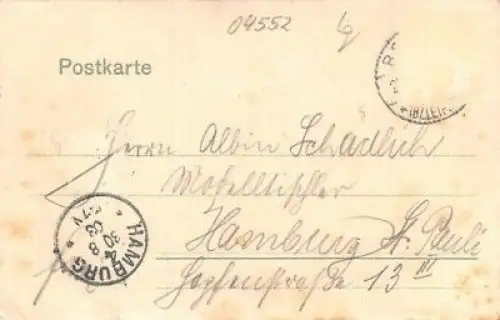 04552
Postkarte
Herrn Albin Schadlich
Modelltischler
Hamburg St. Pauli
Hopfenstraße 13 III
HAMBURG